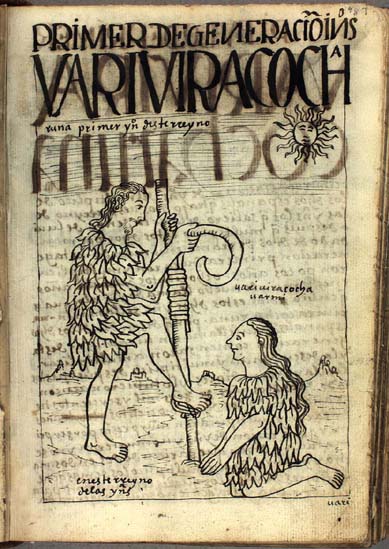 PRIMER DEGENERACIŌ IN̄S
VARI VIRACOCHA
runa primer yn̄ deste rreyno
uari uiracocha
uarmi
en este rreyno
de las yn̄s
uari